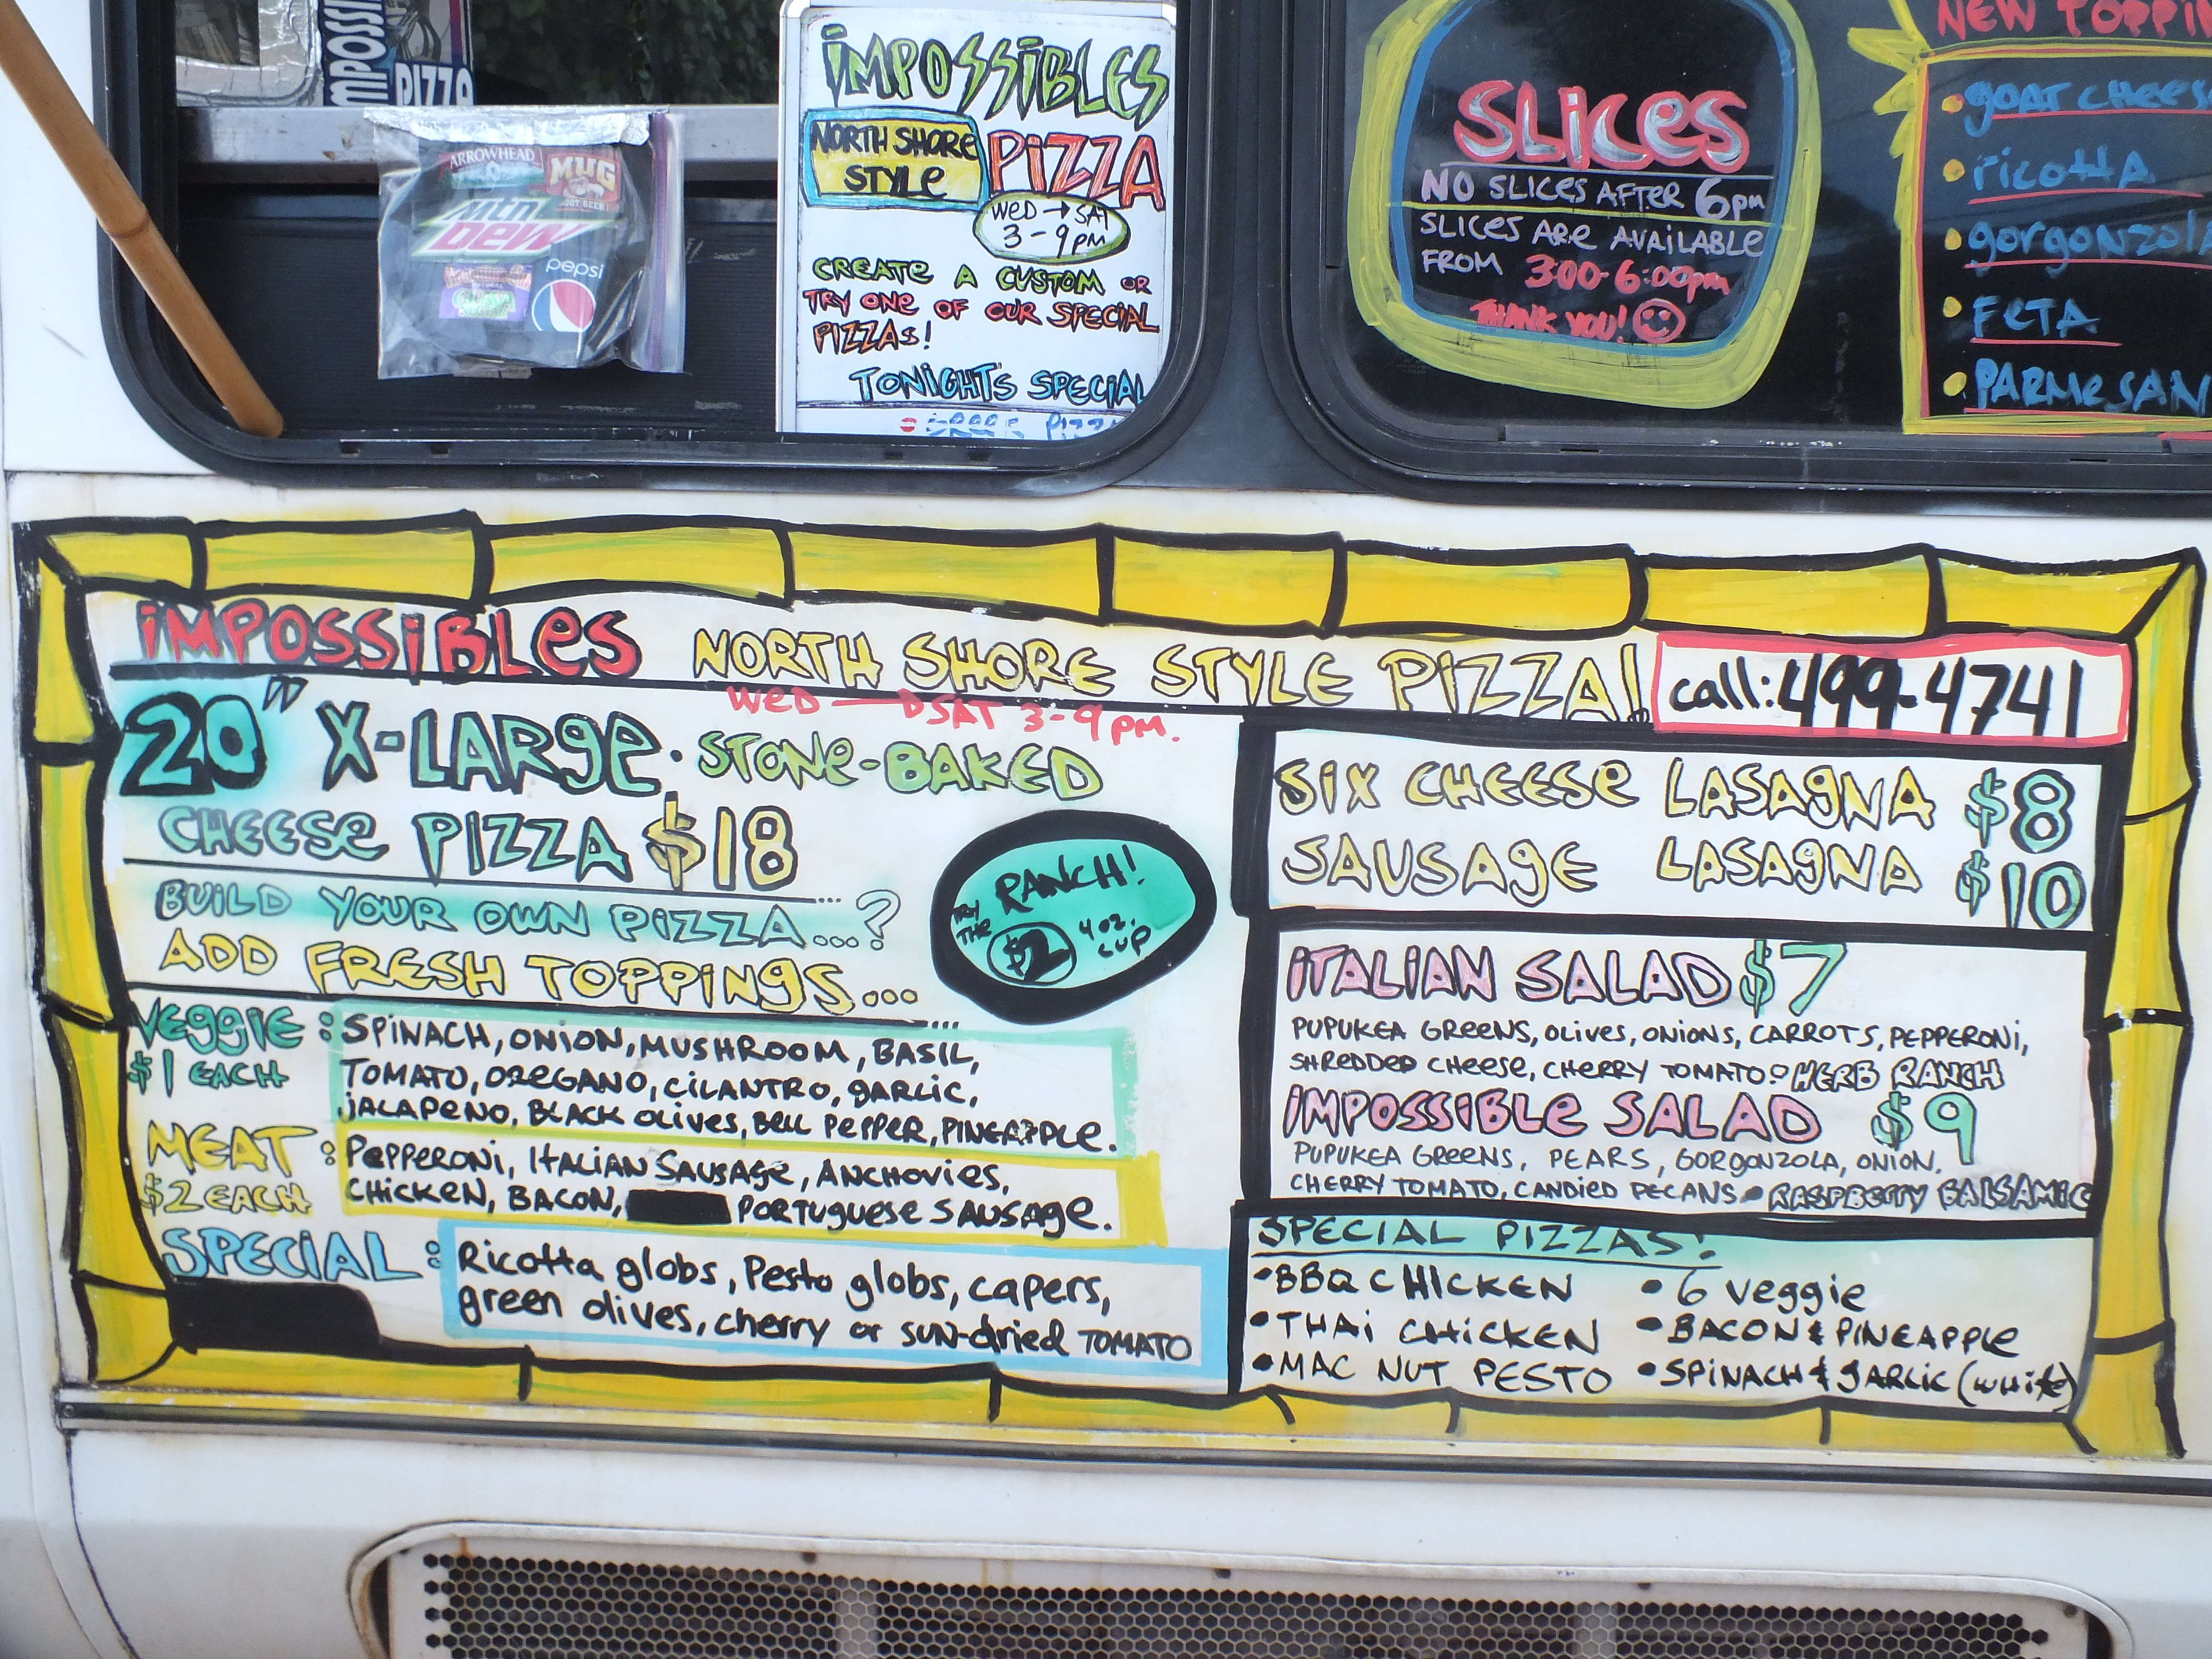 IMPOSSI
PIZZA
ARROWHEAD
MUG
ROOT BEER
Mtn
Dew
pepsi
GUAVA
IMPOSSIBLES
NORTH SHORE
STYLE
PIZZA
WED → SAT
3-9 PM
CREATE A CUSTOM OR
TRY ONE OF OUR SPECIAL
PIZZAS!
TONIGHTS SPECIAL
SLICES
NO SLICES AFTER 6pm
SLICES ARE AVAILABLE
FROM 3:00-6:00pm
THANK YOU!
NEW TOPPIN
• gOAT CHEES
• ricotta
• gorgonzola
• FETA
• PARMeSAN
IMPOSSIBLES NORTH SHORE STYLE PIZZA!
call: 499-4741
WED → SAT 3-9 PM.
20" X-LARge. STONe-BAKED
CHEESe PIZZA $18
BUILD YOUR OWN PIZZA...?
ADD FRESH TOPPINgS...
TRY THE RANCH!
$2 4 oz. CUP
VEggIE: SPINACH, ONION, MUSHROOM, BASIL,
$1 EACH TOMATO, OREGANO, CILANTRO, gARLIC,
JALAPENO, BLACK OLIVES, BELL PEPPER, PINEAPPLE.
MEAT: PEPPERONI, ITALIAN SAUSAGE, ANCHOVIES,
$2 EACH CHICKEN, BACON, PORTUguESE SAUSAge.
SPECIAL: Ricotta globs, Pesto globs, capers,
green olives, cherry or sun-dried TOMATO
SIX CHEESe LASAgNA $8
SAUSAgE LASAgNA $10
ITALIAN SALAD $7
PUPUKEA GREENS, OLIVES, ONIONS, CARROTS, PEPPERONI,
SHREDDED CHEESE, CHERRY TOMATO: HERB RANCH
IMPOSSIBLe SALAD $9
PUPUKEA GREENS, PEARS, GORGONZOLA, ONION.
CHERRY TOMATO, CANDIED PECANS • RASPBERRY BALSAMIC
SPECIAL PIZZAS!
• BBQ CHICKEN • 6 Veggie
• THAI CHICKEN • BACON & PINEAPPLE
• MAC NUT PESTO • SPINACH & gARLIC (WHITE)